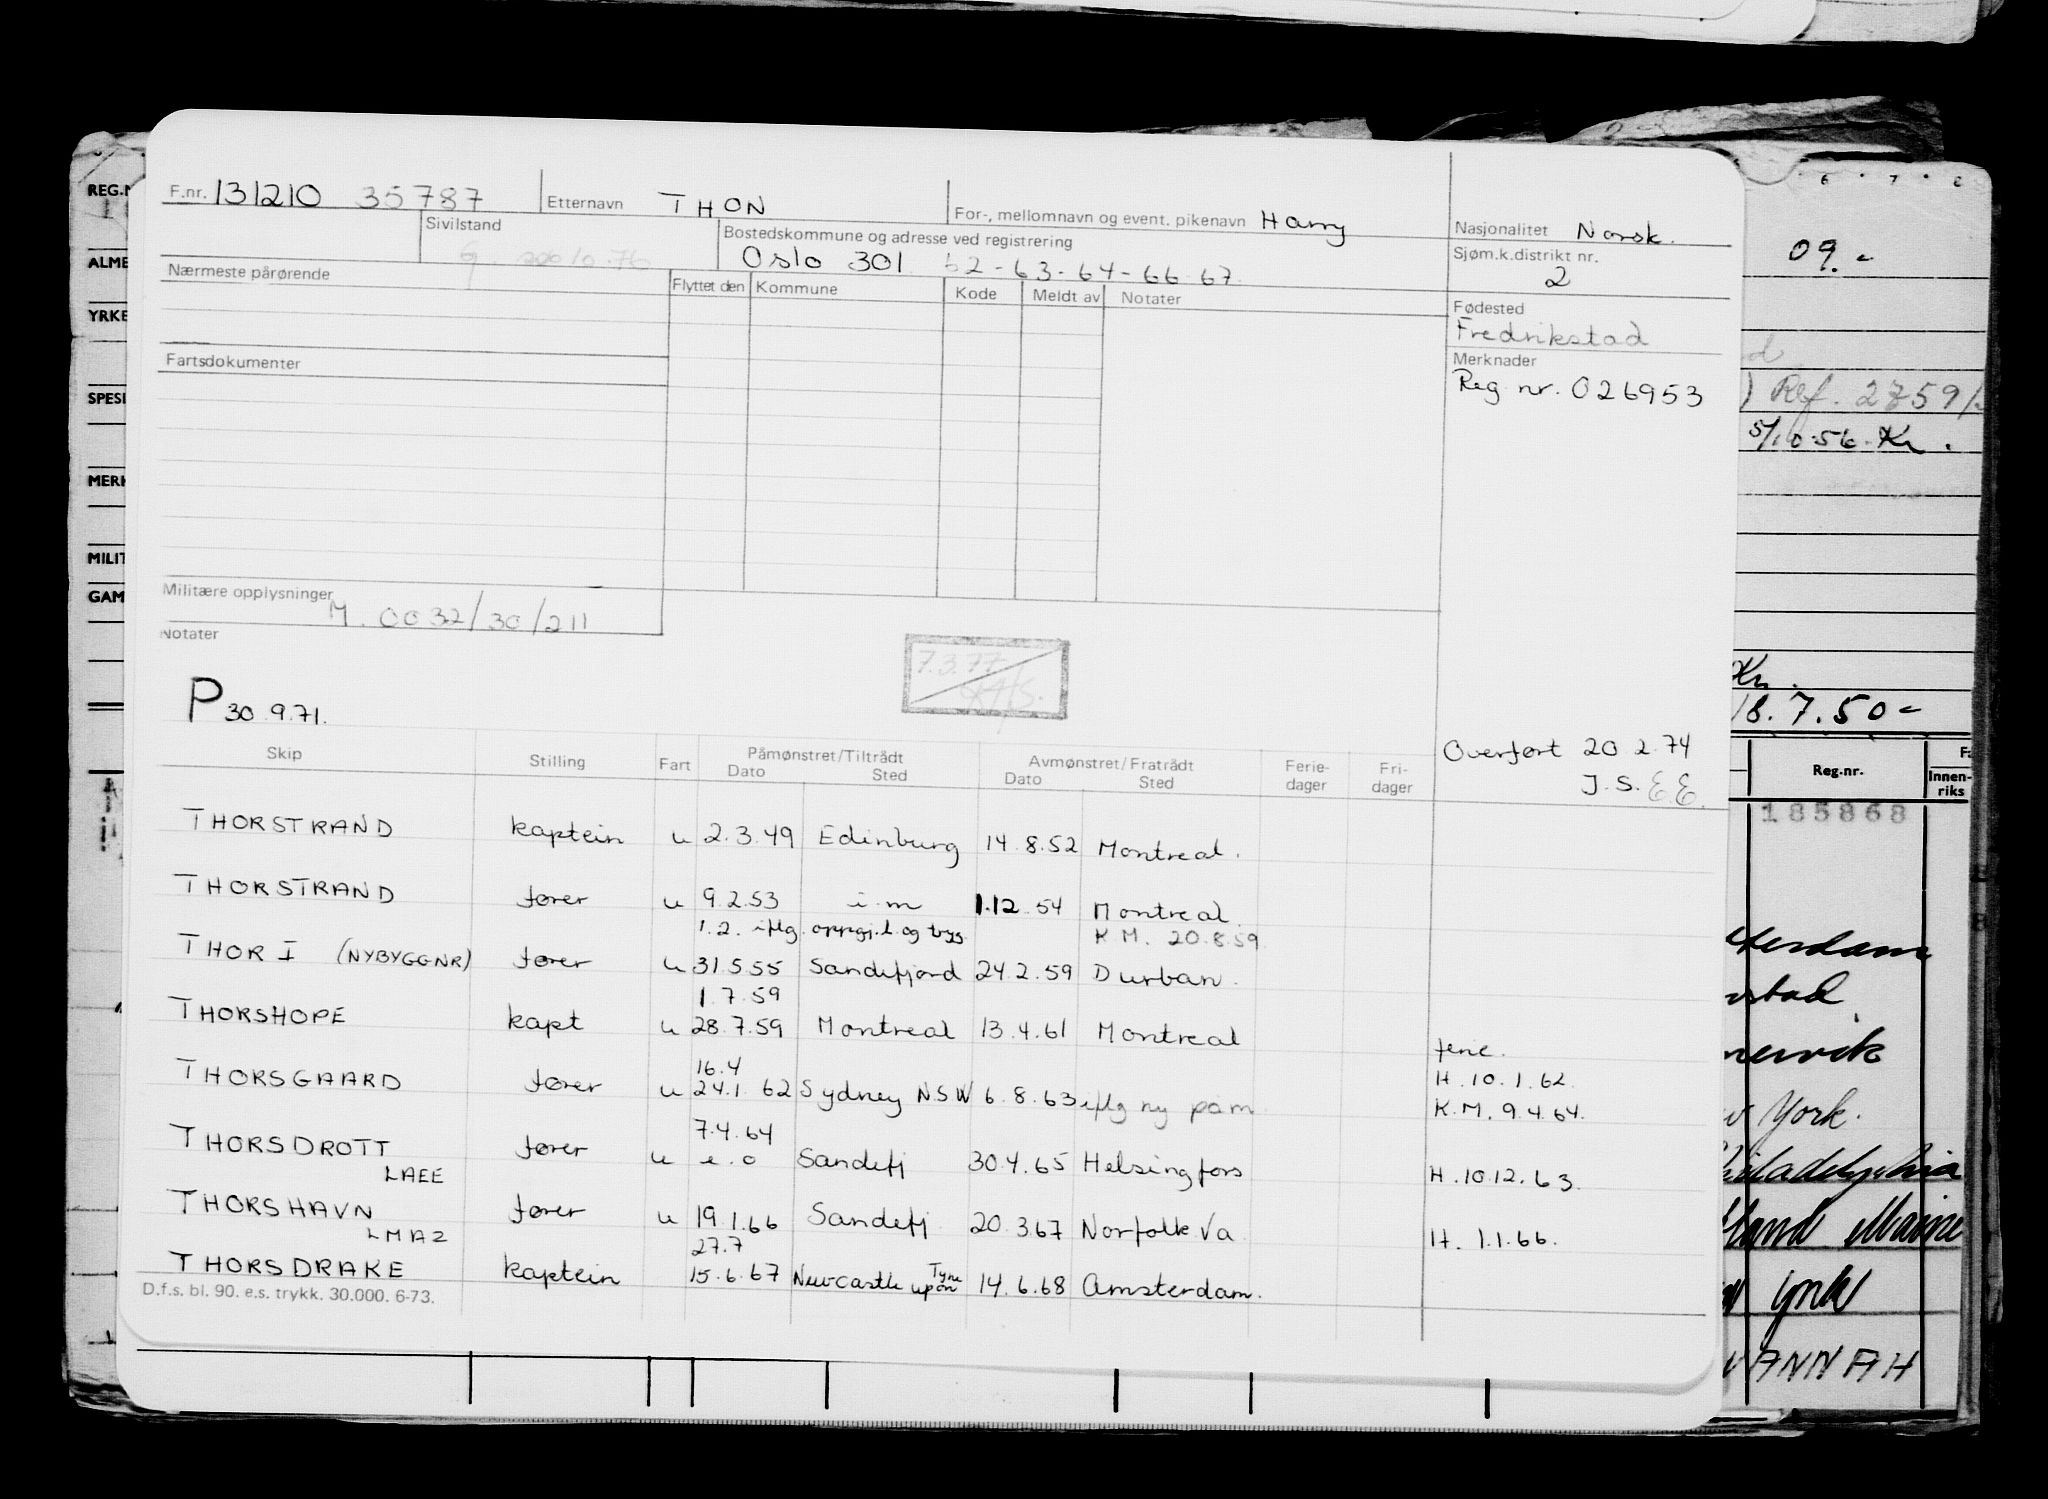 F.nr. 131210 35787 Etternavn THON For-, mellomnavn og event. pikenavn Harry Nasjonalitet Norsk.
Sivilstand Bostedskommune og adresse ved registrering Sjøm.k.distrikt nr.
Oslo 301 62-63-64-66-67. 2
Nærmeste pårørende Flyttet den Kommune Kode Meldt av Notater Fødested
Fredrikstad
Fartsdokumenter Merknader
Reg nr. 026953
Militære opplysninger
M. 0032/30/211
Notater
7.3.77
P 30.9.71.
Overført 20.2.74
J.S. E.E.
Skip Stilling Fart Påmønstret/Tiltrådt Avmønstret/Fratrådt Ferie- Fri-
Dato Sted Dato Sted dager dager
THORSTRAND kaptein u 2.3.49 Edinburg 14.8.52 Montreal.
THORSTRAND fører u 9.2.53 i.m 1.12.54 Montreal.
1.2. iflg. oppgj.l. og tryg. K.M. 20.8.59
THOR I (NYBYGGNR) fører u 31.5.55 Sandefjord 24.2.59 Durban.
1.7.59
THORSHOPE kapt u 28.7.59 Montreal 13.4.61 Montreal
ferie.
16.4
THORSGAARD fører u 24.1.62 Sydney NSW 6.8.63 iflg ny påm H.10.1.62.
K.M. 9.4.64.
7.4.64
THORSDROTT fører u e.o Sandefj 30.4.65 Helsingfors H.10.12.63.
LAEE
THORSHAVN fører u 19.1.66 Sandefj. 20.3.67 Norfolk Va H. 1.1.66.
LMAZ
27.7
THORSDRAKE kaptein 15.6.67 Newcastle upon Tyne 14.6.68 Amsterdam.
D.f.s. bl. 90. e.s. trykk. 30.000. 6-73.
REG.N
ALME
YRKE
SPESI
MERK
MILIT
GAM
09.-
Ref. 2759/
5/10.56. Kr.
Kr.
18.7.50-
Reg.nr. Innen-
riks
185868
York.
Philadelphia
York
ANNAH